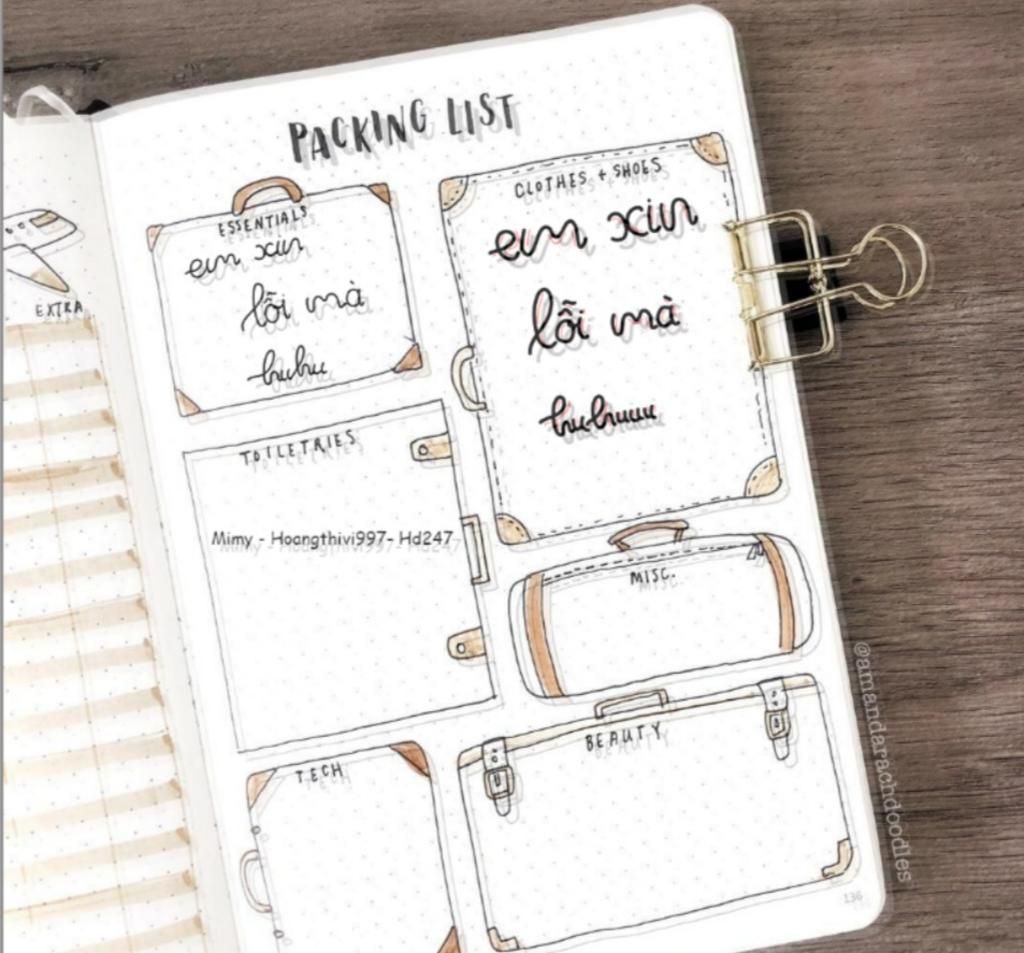 PACKING LIST
ESSENTIALS
em xin
lỗi mà
huhu
CLOTHES + SHOES
em xin
lỗi mà
huhuuu
EXTRA
TOILETRIES
Mimy - Hoangthivi997- Hd247
MISC.
TECH
BEAUTY
136
@amandarachdoodles